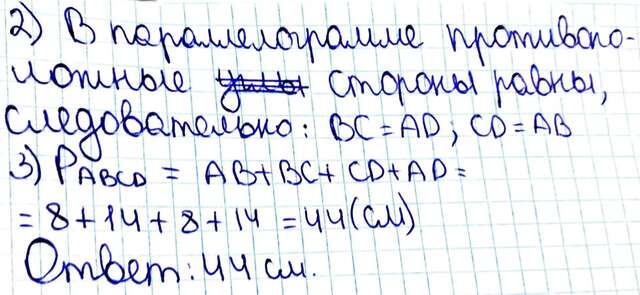 2) В параллелограмме противопо-
ложные углы стороны равны,
следовательно: BC = AD; CD = AB
3) PABCD = AB + BC + CD + AD =
= 8 + 14 + 8 + 14 = 44 (см)
Ответ: 44 см.